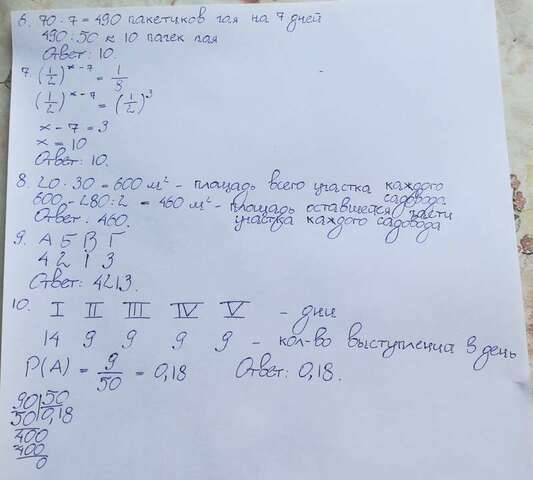 6. 70 · 7 = 490 пакетиков чая на 7 дней
490 : 50 ≈ 10 пачек чая
Ответ: 10.
7. (1/2)^x-7 = 1/8
(1/2)^x-7 = (1/2)^3
x - 7 = 3
x = 10
Ответ: 10.
8. 20 · 30 = 600 м² - площадь всего участка каждого садовода
600 - 280 : 2 = 460 м² - площадь оставшейся части участка каждого садовода
Ответ: 460.
9. А Б В Г
4 2 1 3
Ответ: 4213.
10. I II III IV V - дни
14 9 9 9 9 - кол-во выступления в день
P(A) = 9/50 = 0,18 Ответ: 0,18.
90 | 50
50 | 0,18
400
400
0